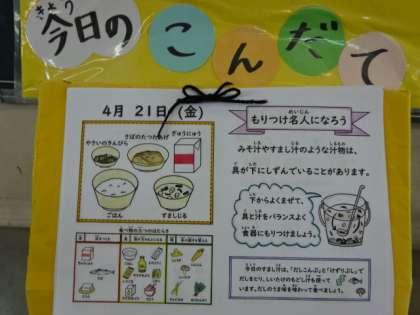 きょう
今日の
こんだて
4月 21日 (金)
さばのたつたあげ
ぎゅうにゅう
やさいのきんぴら
ごはん
すましじる
食べ物の三つのはたらき
めいじん
もりつけ名人になろう
みそ汁やすまし汁のような汁物は、
具が下にしずんでいることがあります。
下からよくまぜて、
具と汁をバランスよく
食器にもりつけましょう。
今日のすまし汁は、「だしこんぶ」と「けずりぶし」で
だしをとり、しいたけのもどし汁も使って
います。だしのうま味を味わって食べましょう。